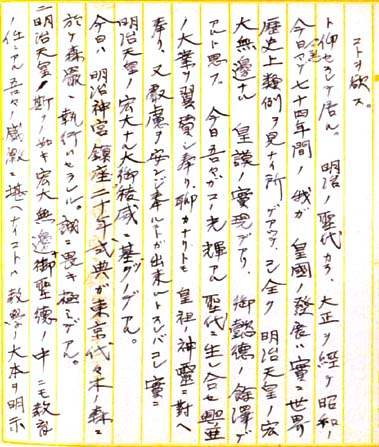 コトヲ欲ス。
ト仰セラレテ居ル。 明治ノ聖代カラ、大正ヲ経テ昭和ノ
今日マデ七十四年間ノ我ガ 皇國ノ發展ハ實ニ世界
歴史上類例ヲ見ナイ所デアツテ、コレ全ク 明治天皇ノ宏
大無邊ナル 皇謨ノ實現デアリ、御懿德ノ餘澤デ
アルト思フ。 今日吾々ガコノ光輝アル 聖代ニ生レ合セ興亜
ノ大業ヲ翼賛シ奉リ、聊カナリトモ 皇祖ノ神靈ニ對ヘ
奉リ、又叡慮ヲ安ンジ奉ルコトガ出来ルトスレバコレ實ニ
明治天皇ノ宏大ナル大御稜威ニ基ヅクノデアル。
今日ハ 明治神宮鎮座二十年式典が東京代々木ノ森ニ
於テ森嚴ニ執行ハセラレル。誠ニ畏キ極ミデアル。
明治天皇ノ斯クノ如キ宏大無邊ノ御聖德ノ中ニモ教育
ノ任ニアル吾々ノ感激ニ堪ヘナイコトハ教學ノ大本ヲ明示